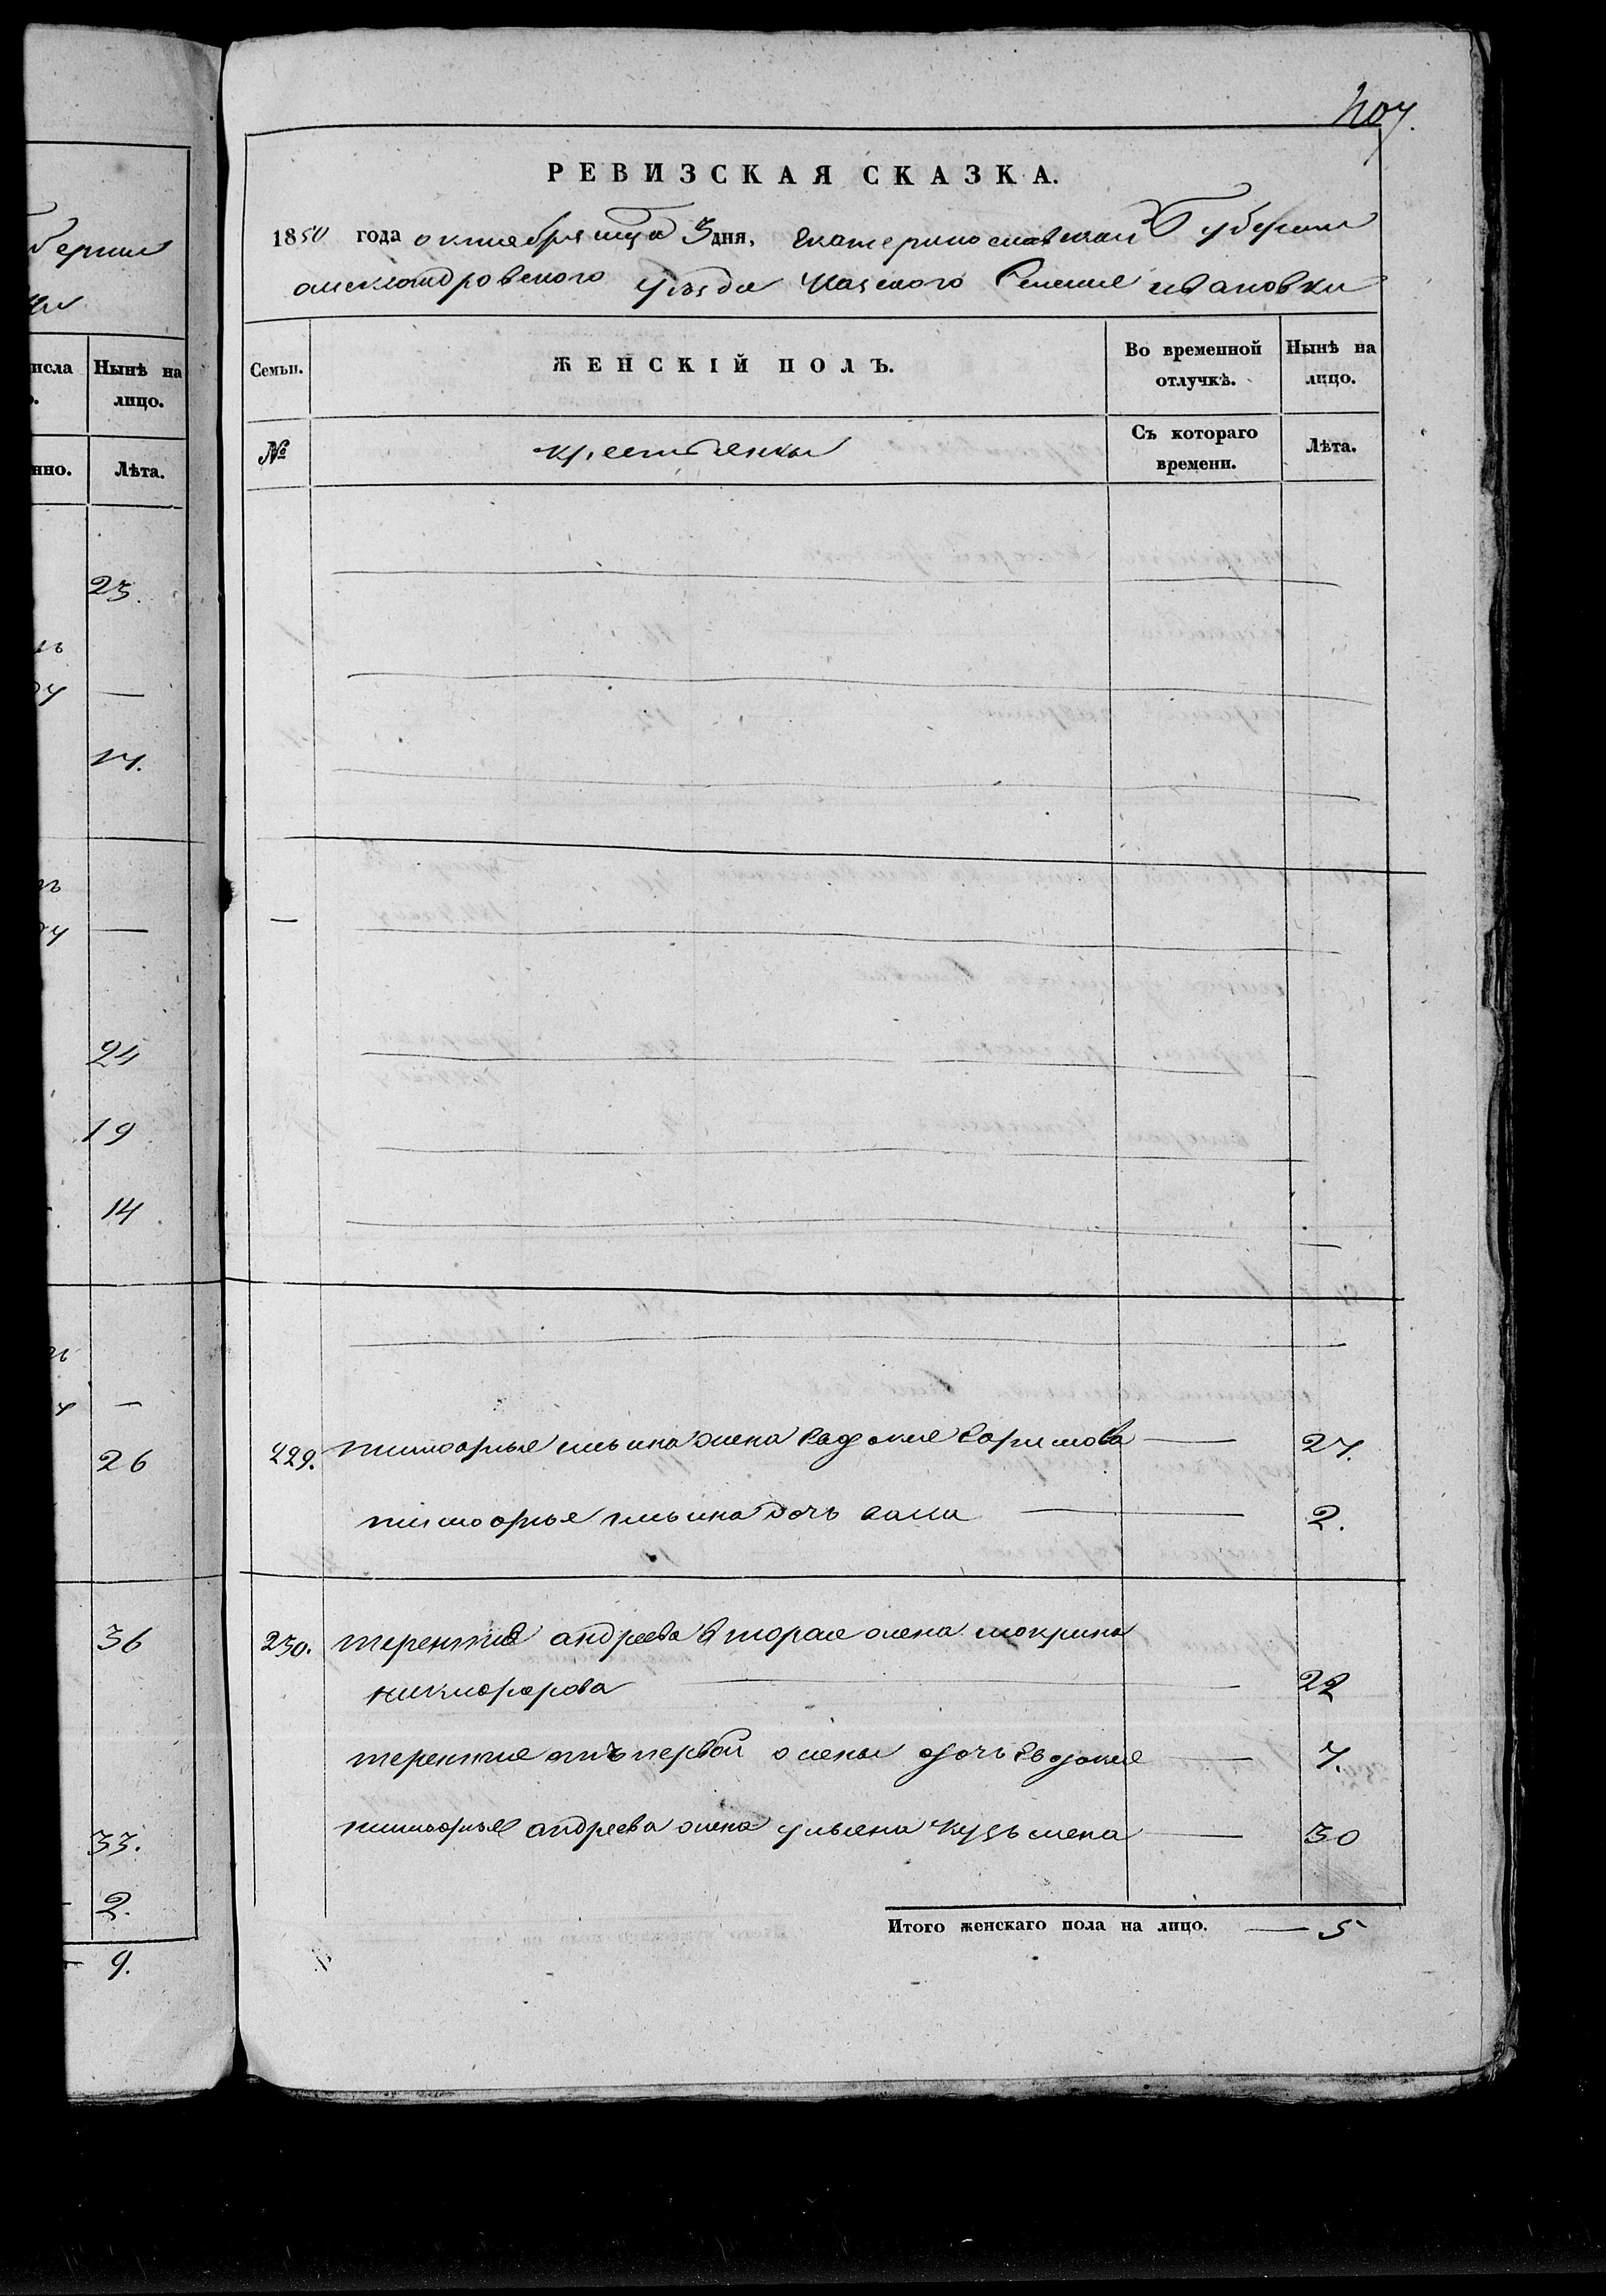 берніи
ки
числа
Нынѣ на
лицо.
нно.
Лѣта.
23.
—
24
19
14
—
26
36
33.
2.
9.
407.
РЕВИЗСКАЯ СКАЗКА.
1850 года октября мца 3 дня, Екатеринославской Губернии
александровского уезда Казеного Селение ивановки
Семьи.
ЖЕНСКІЙ ПОЛЪ.
Во временной отлучкѣ.
Нынѣ на лицо.
№
крестьянки
Съ котораго времени.
Лѣта.
229. тимофея ильина жена Евдокия Ефимова — 27.
тимофея ильина дочь — 2.
230. терентия андреева вторая жена мокрина
никифорова — 22
терентия отъ первой жены дочь Евдокия — 7.
тимофея андреева жена ульяна кузьмена — 30
Итого женскаго пола на лицо. — 5